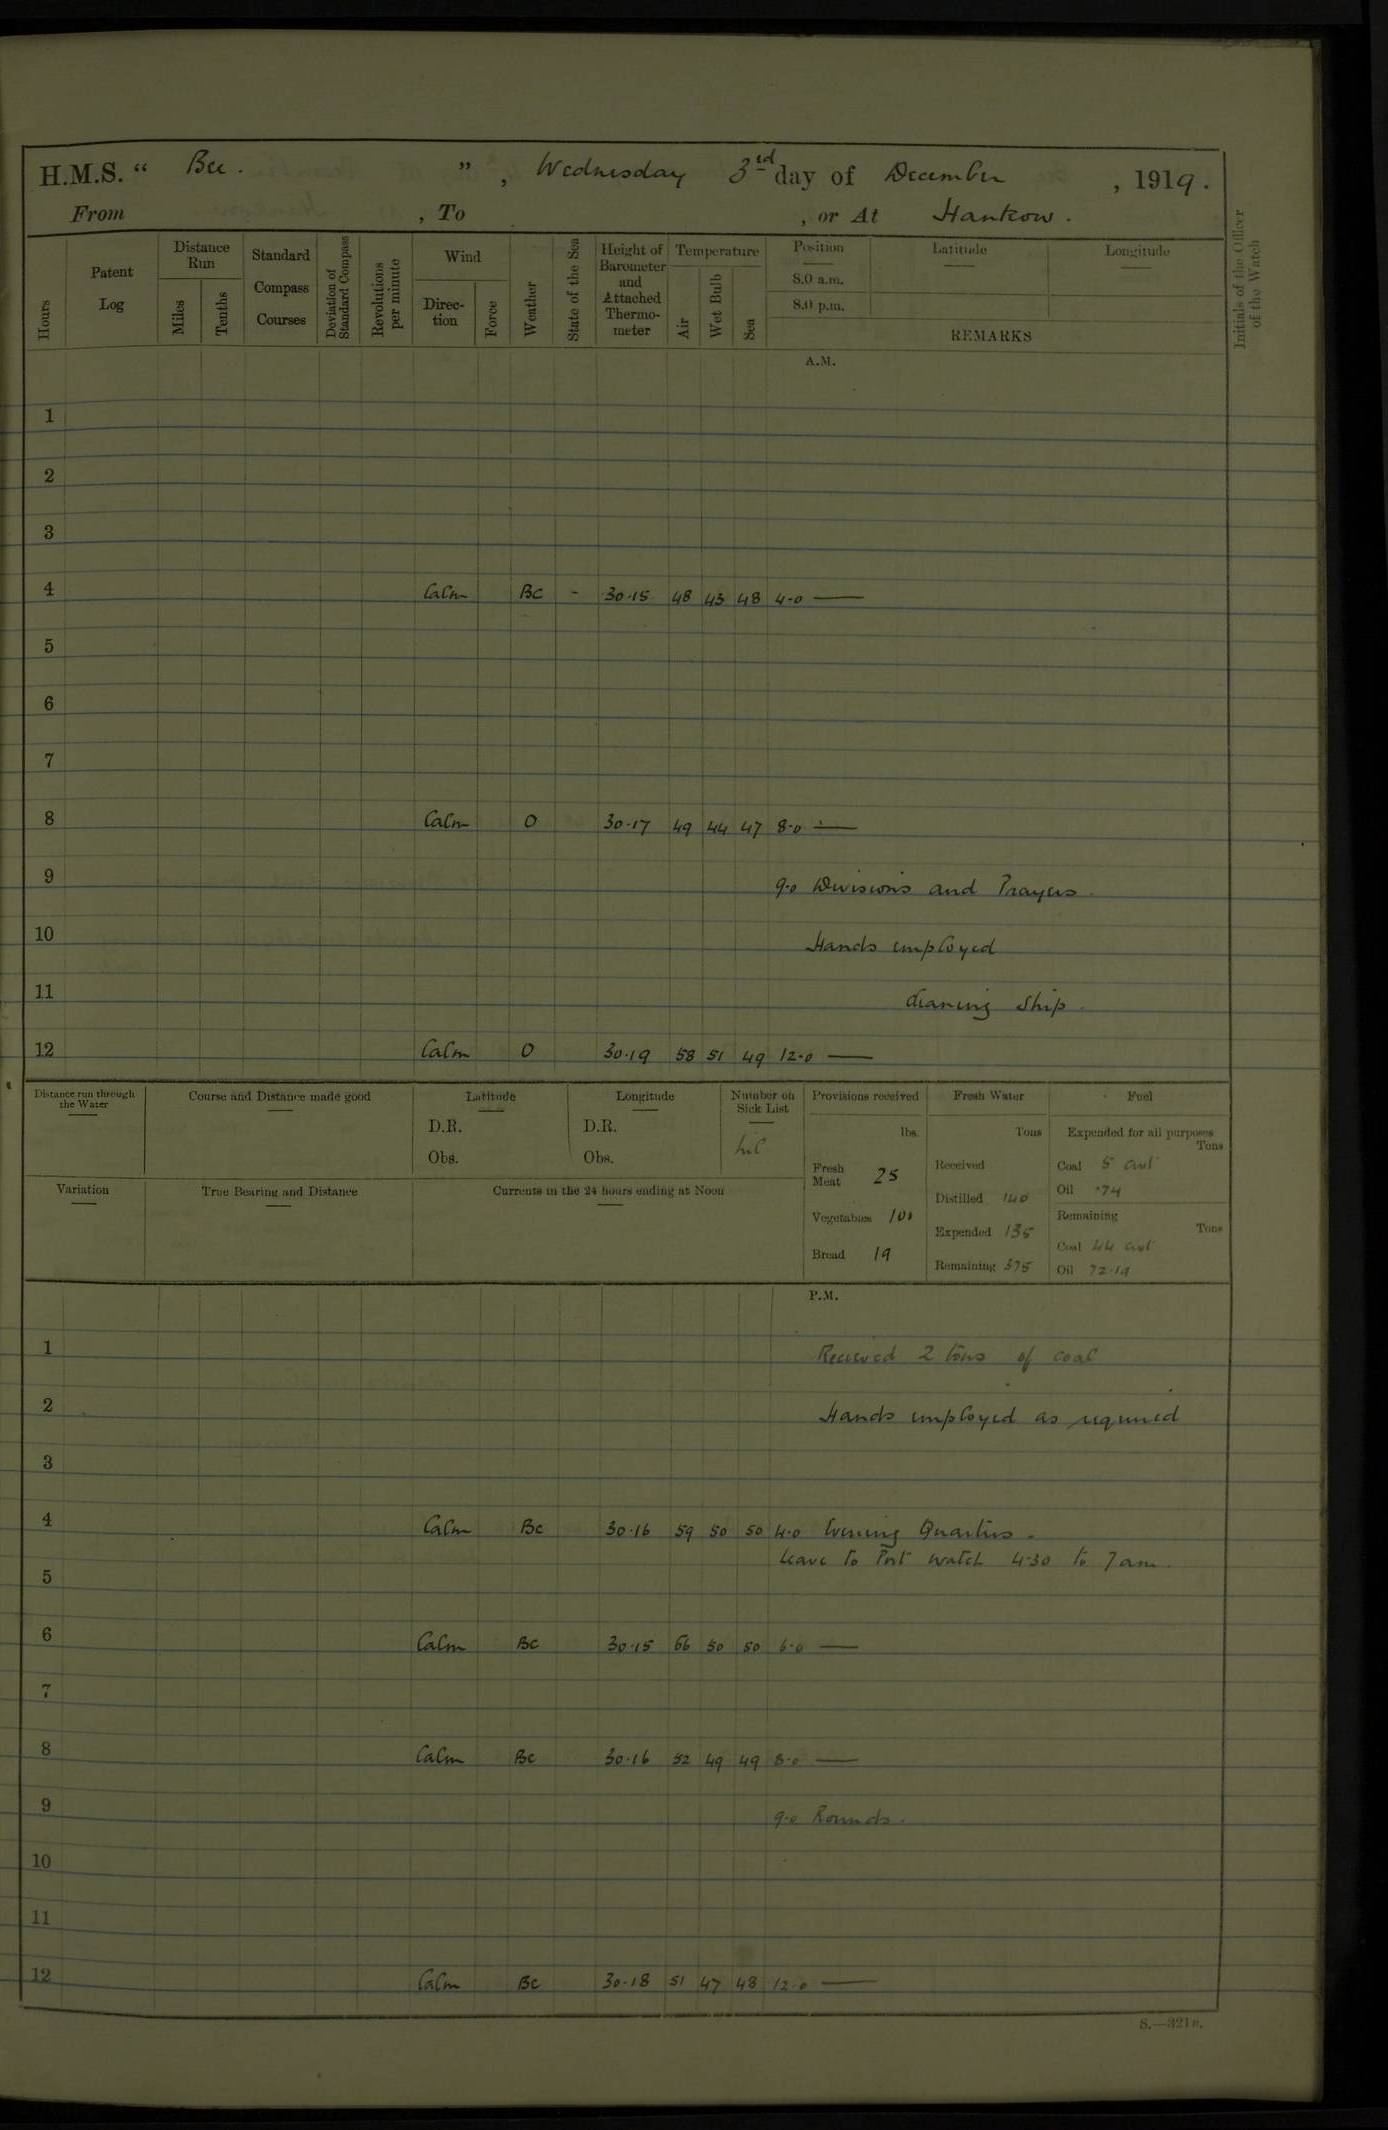 H.M.S. " Bee. " , Wednesday 3rd day of December , 1919.
From , To , or At Hankow.
Hours
Patent Log
Distance Run
Miles
Tenths
Standard Compass Courses
Deviation of Standard Compass
Revolutions per minute
Wind
Direction
Force
Weather
State of the Sea
Height of Barometer and Attached Thermometer
Temperature
Air
Wet Bulb
Sea
Position
8.0 a.m.
8.0 p.m.
Latitude
Longitude
REMARKS
Initials of the Officer of the Watch
A.M.
1
2
3
4 Calm BC - 30.15 48 43 48 4-0 —
5
6
7
8 Calm O 30.17 49 44 47 8-0 —
9 9-0 Divisions and Prayers.
10 Hands employed
11 cleaning ship.
12 Calm O 30.19 58 51 49 12-0 —
Distance run through the Water
Course and Distance made good
Latitude
D.R.
Obs.
Longitude
D.R.
Obs.
Number on Sick List
nil
Provisions received
lbs.
Fresh Meat 25
Vegetables 100
Bread 19
Fresh Water
Tons
Received
Distilled 140
Expended 135
Remaining 375
Fuel
Expended for all purposes
Tons
Coal 5 cwt
Oil .74
Remaining
Tons
Coal 44 cwt
Oil 72.19
Variation
True Bearing and Distance
Currents in the 24 hours ending at Noon
P.M.
1 Received 2 tons of coal
2 Hands employed as required
3
4 Calm BC 30.16 59 50 50 4-0 Evening Quarters.
Leave to Port watch 4.30 to 7am.
5
6 Calm BC 30.15 56 50 50 6-0 —
7
8 Calm BC 30.16 52 49 49 8-0 —
9 9-0 Rounds.
10
11
12 Calm BC 30.18 51 47 48 12-0 —
S.—321a.